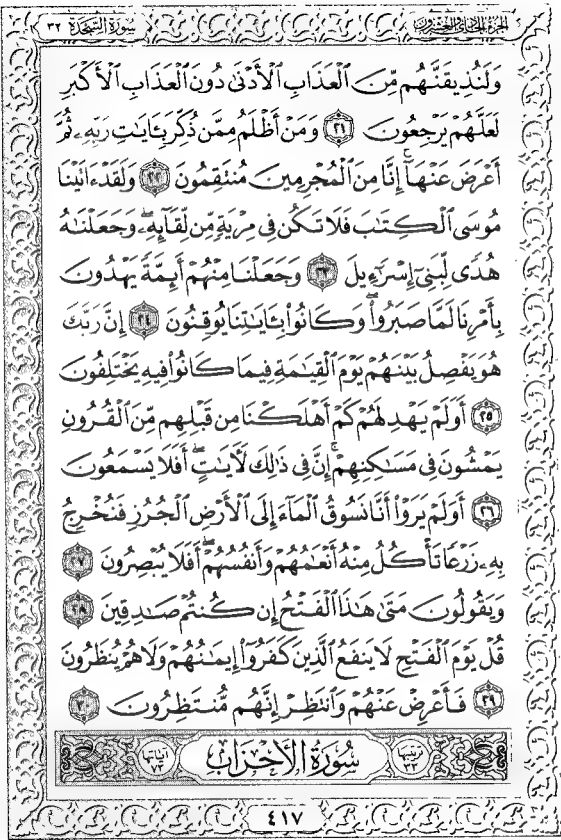 سورة السجدة ٣٢
الجزء الحادي والعشرون
وَلَنُذِيقَنَّهُم مِّنَ ٱلْعَذَابِ ٱلْأَدْنَىٰ دُونَ ٱلْعَذَابِ ٱلْأَكْبَرِ
لَعَلَّهُمْ يَرْجِعُونَ ٢١ وَمَنْ أَظْلَمُ مِمَّن ذُكِّرَ بِـَٔايَـٰتِ رَبِّهِۦ ثُمَّ
أَعْرَضَ عَنْهَآ ۚ إِنَّا مِنَ ٱلْمُجْرِمِينَ مُنتَقِمُونَ ٢٢ وَلَقَدْ ءَاتَيْنَا
مُوسَى ٱلْكِتَـٰبَ فَلَا تَكُن فِى مِرْيَةٍ مِّن لِّقَآئِهِۦ ۖ وَجَعَلْنَـٰهُ
هُدًى لِّبَنِىٓ إِسْرَٰٓءِيلَ ٢٣ وَجَعَلْنَا مِنْهُمْ أَئِمَّةً يَهْدُونَ
بِأَمْرِنَا لَمَّا صَبَرُوا۟ ۖ وَكَانُوا۟ بِـَٔايَـٰتِنَا يُوقِنُونَ ٢٤ إِنَّ رَبَّكَ
هُوَ يَفْصِلُ بَيْنَهُمْ يَوْمَ ٱلْقِيَـٰمَةِ فِيمَا كَانُوا۟ فِيهِ يَخْتَلِفُونَ
٢٥ أَوَلَمْ يَهْدِ لَهُمْ كَمْ أَهْلَكْنَا مِن قَبْلِهِم مِّنَ ٱلْقُرُونِ
يَمْشُونَ فِى مَسَـٰكِنِهِمْ ۚ إِنَّ فِى ذَٰلِكَ لَـَٔايَـٰتٍ ۖ أَفَلَا يَسْمَعُونَ
٢٦ أَوَلَمْ يَرَوْا۟ أَنَّا نَسُوقُ ٱلْمَآءَ إِلَى ٱلْأَرْضِ ٱلْجُرُزِ فَنُخْرِجُ
بِهِۦ زَرْعًا تَأْكُلُ مِنْهُ أَنْعَـٰمُهُمْ وَأَنفُسُهُمْ ۖ أَفَلَا يُبْصِرُونَ ٢٧
وَيَقُولُونَ مَتَىٰ هَـٰذَا ٱلْفَتْحُ إِن كُنتُمْ صَـٰدِقِينَ ٢٨
قُلْ يَوْمَ ٱلْفَتْحِ لَا يَنفَعُ ٱلَّذِينَ كَفَرُوٓا۟ إِيمَـٰنُهُمْ وَلَا هُمْ يُنظَرُونَ
٢٩ فَأَعْرِضْ عَنْهُمْ وَٱنتَظِرْ إِنَّهُم مُّنتَظِرُونَ ٣٠
ترتيبها ٣٣ سُورَةُ الأَحْزَابِ آياتها ٧٣
٤١٧